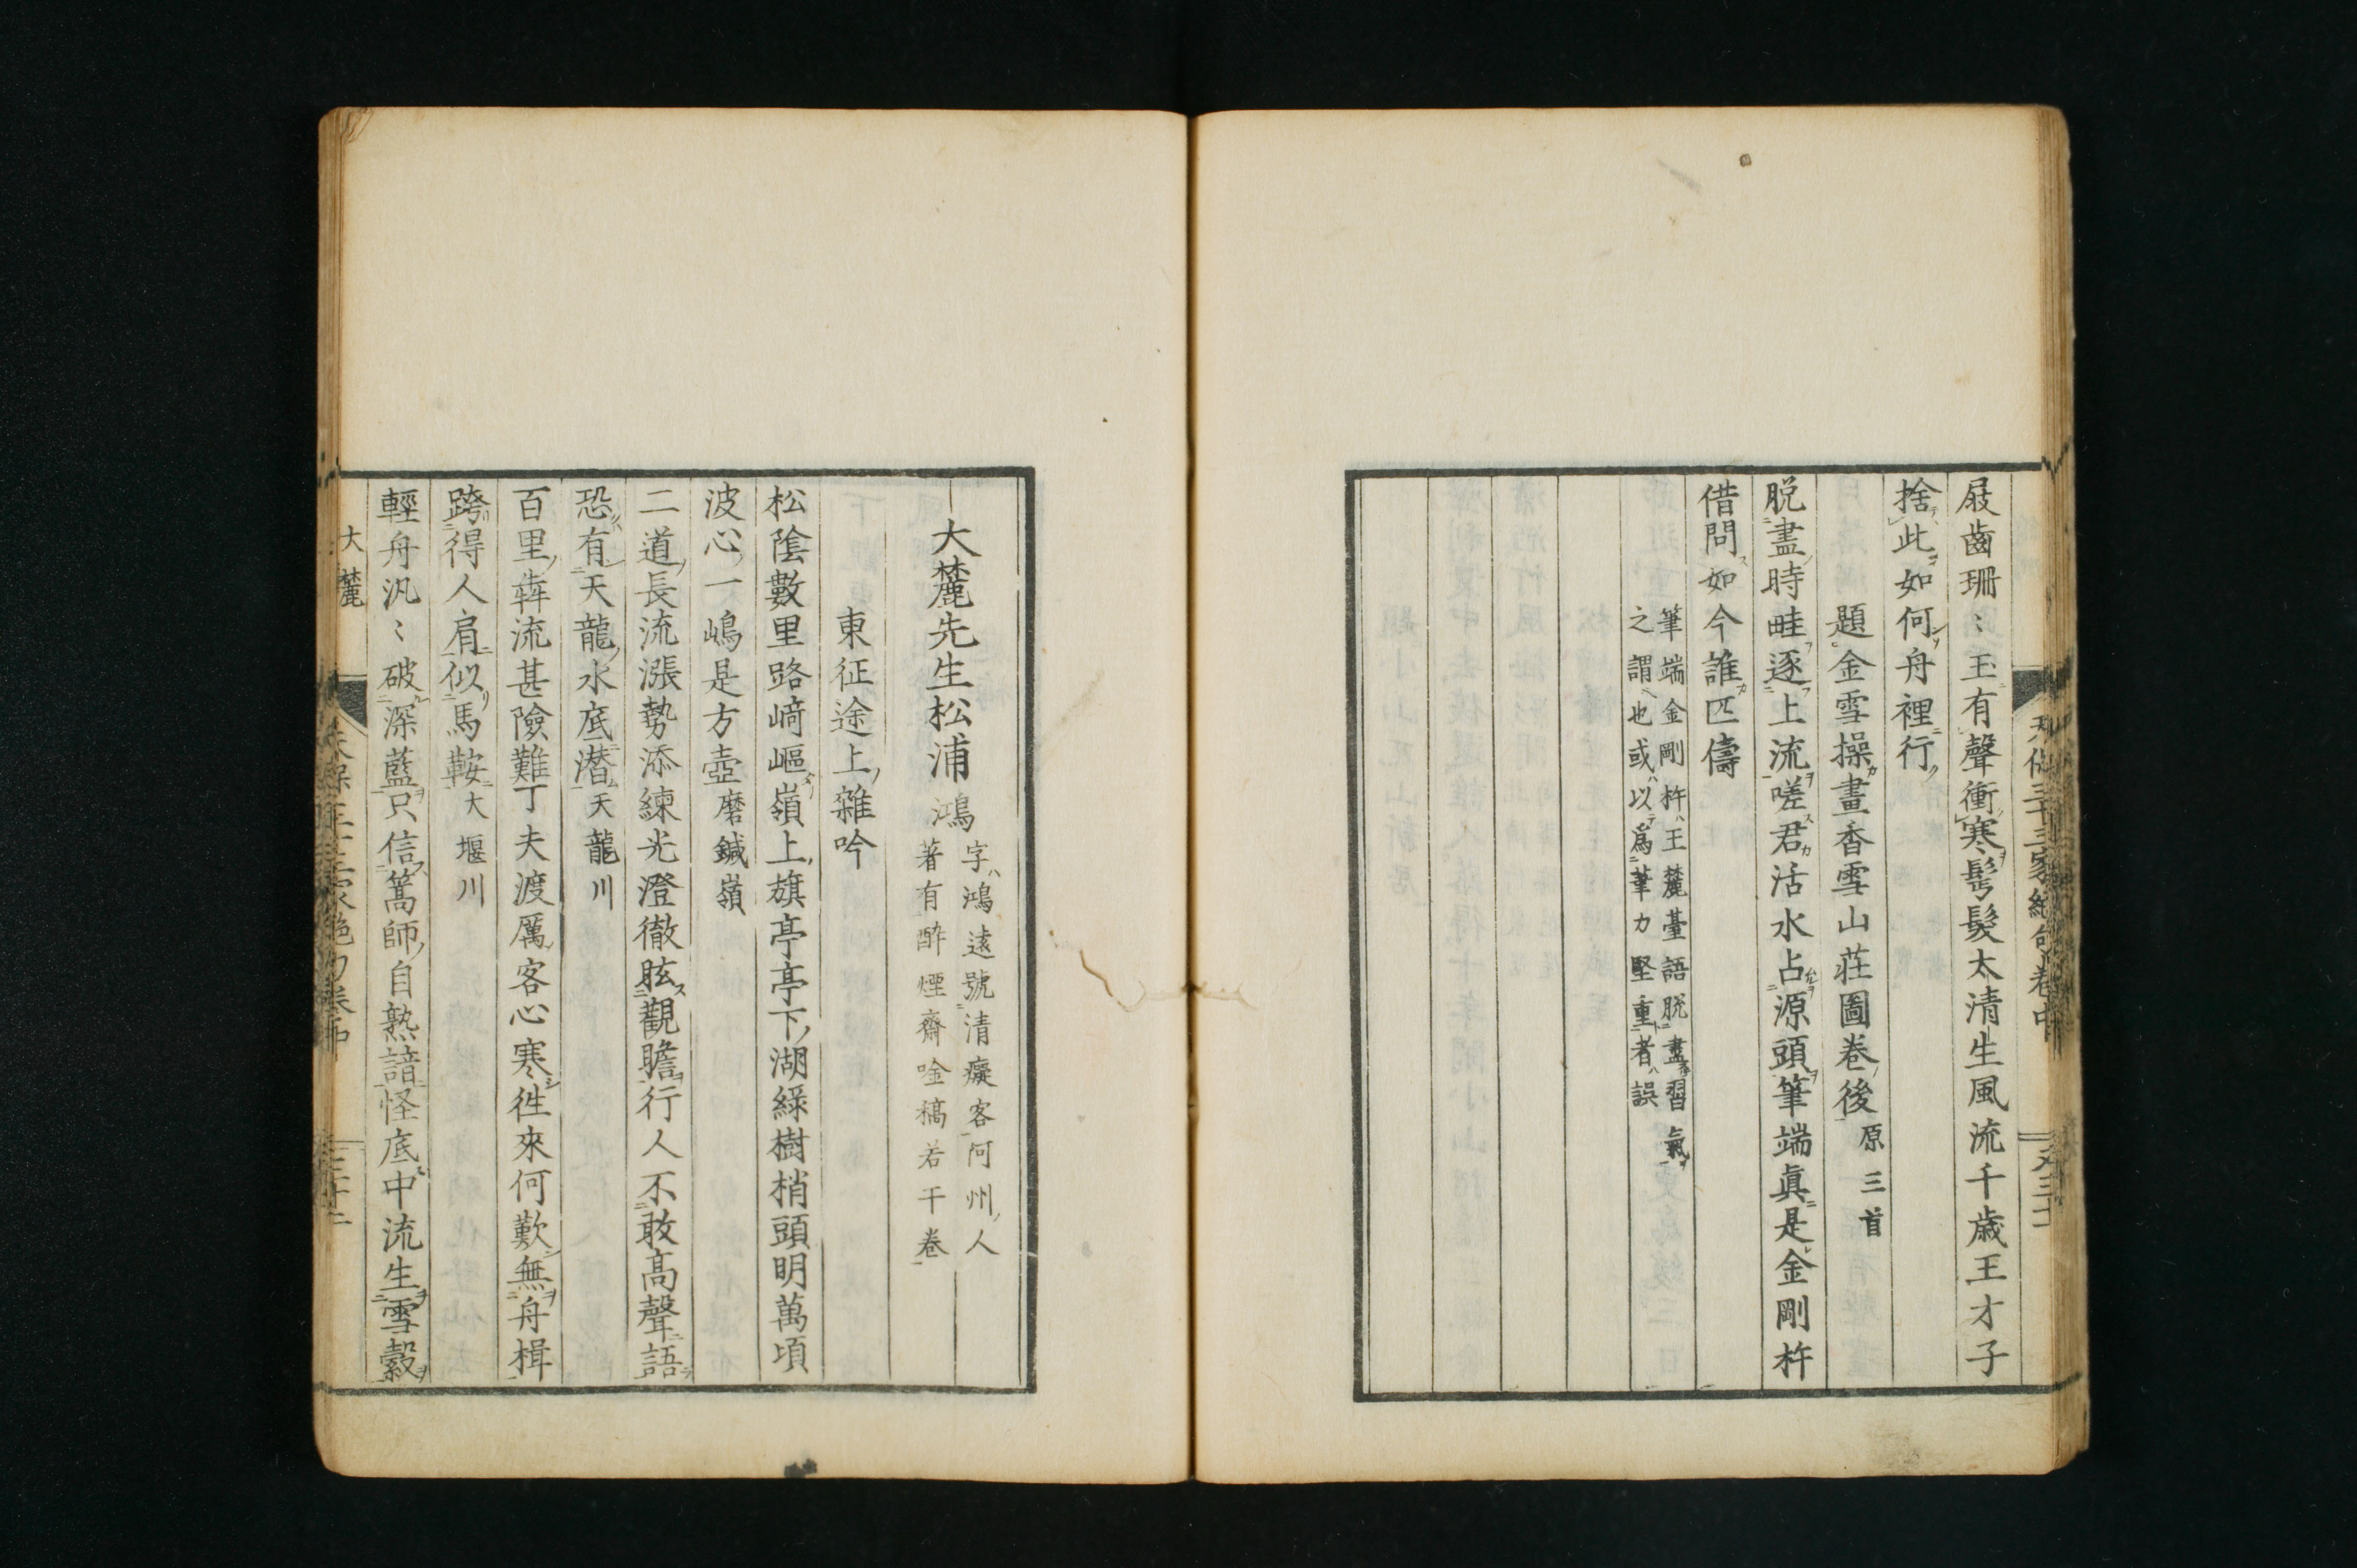 屐齒珊〻玉有聲衝寒髩髮太清生風流千歳王才子
捨此如何舟裡行
題金雪操畫香雪山莊圖卷後原三首
脱盡時畦逐上流嗟君活水占源頭筆端眞是金剛杵
借問如今誰匹儔
筆端金剛杵王麓臺語脱盡習氣
之謂也或以爲筆力堅重者誤
大麓先生松浦鴻
字鴻遠號清癡客阿州人
著有醉煙齋唫稿若干卷
東征途上雜吟
松陰數里路﨑嶇嶺上旗亭亭下湖綠樹梢頭明萬頃
波心一嶋是方壺磨鍼嶺
二道長流漲勢添練光澄徹眩觀瞻行人不敢高聲語
恐有天龍水底潜天龍川
百里犇流甚險難丁夫渡厲客心寒徃來何歎無舟楫
跨得人肩似馬鞍大堰川
輕舟汎〻破深藍只信篙師自熟諳怪底中流生雪縠
大麓